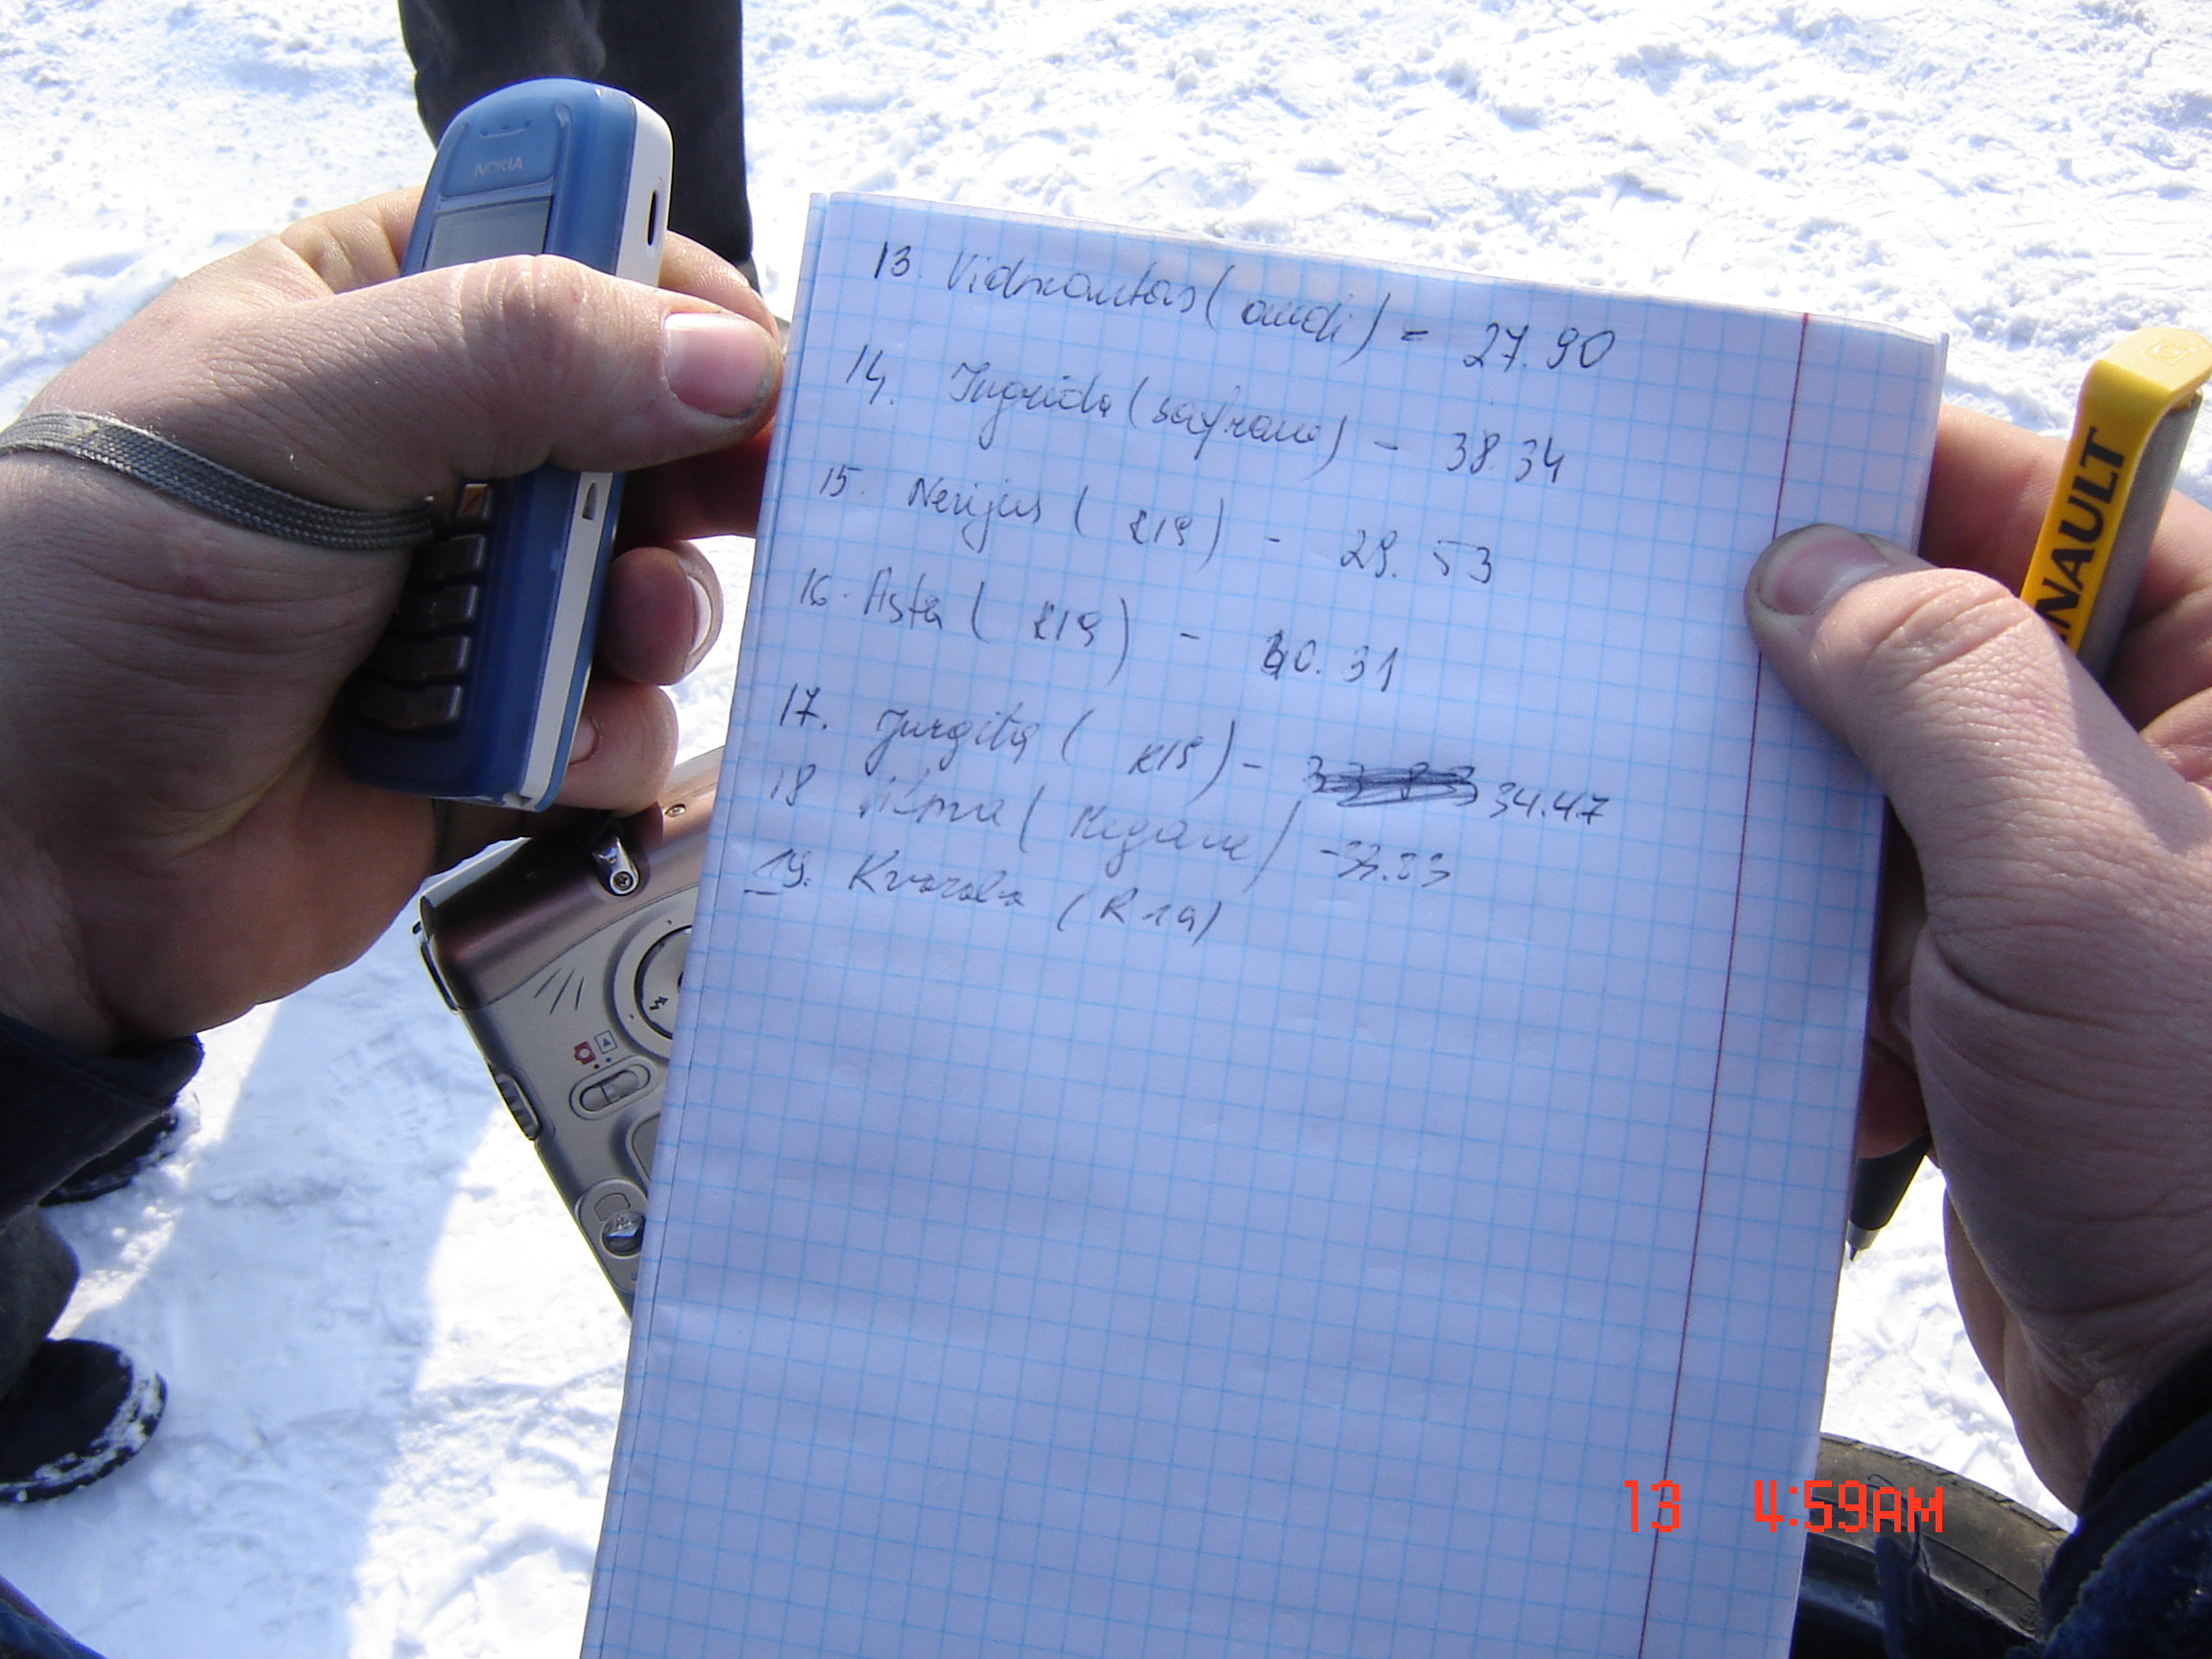 NOKIA
13. Vidmantas (audi) = 27.90
14. Ingrida (safrane) - 38.34
15. Nerijus (R19) - 29.53
16. Asta (R19) - 30.31
17. Jurgita (R19) - 34.47
18 Vilma (Megane) - 33.83
19. (R19)
NAULT
13 4:59AM